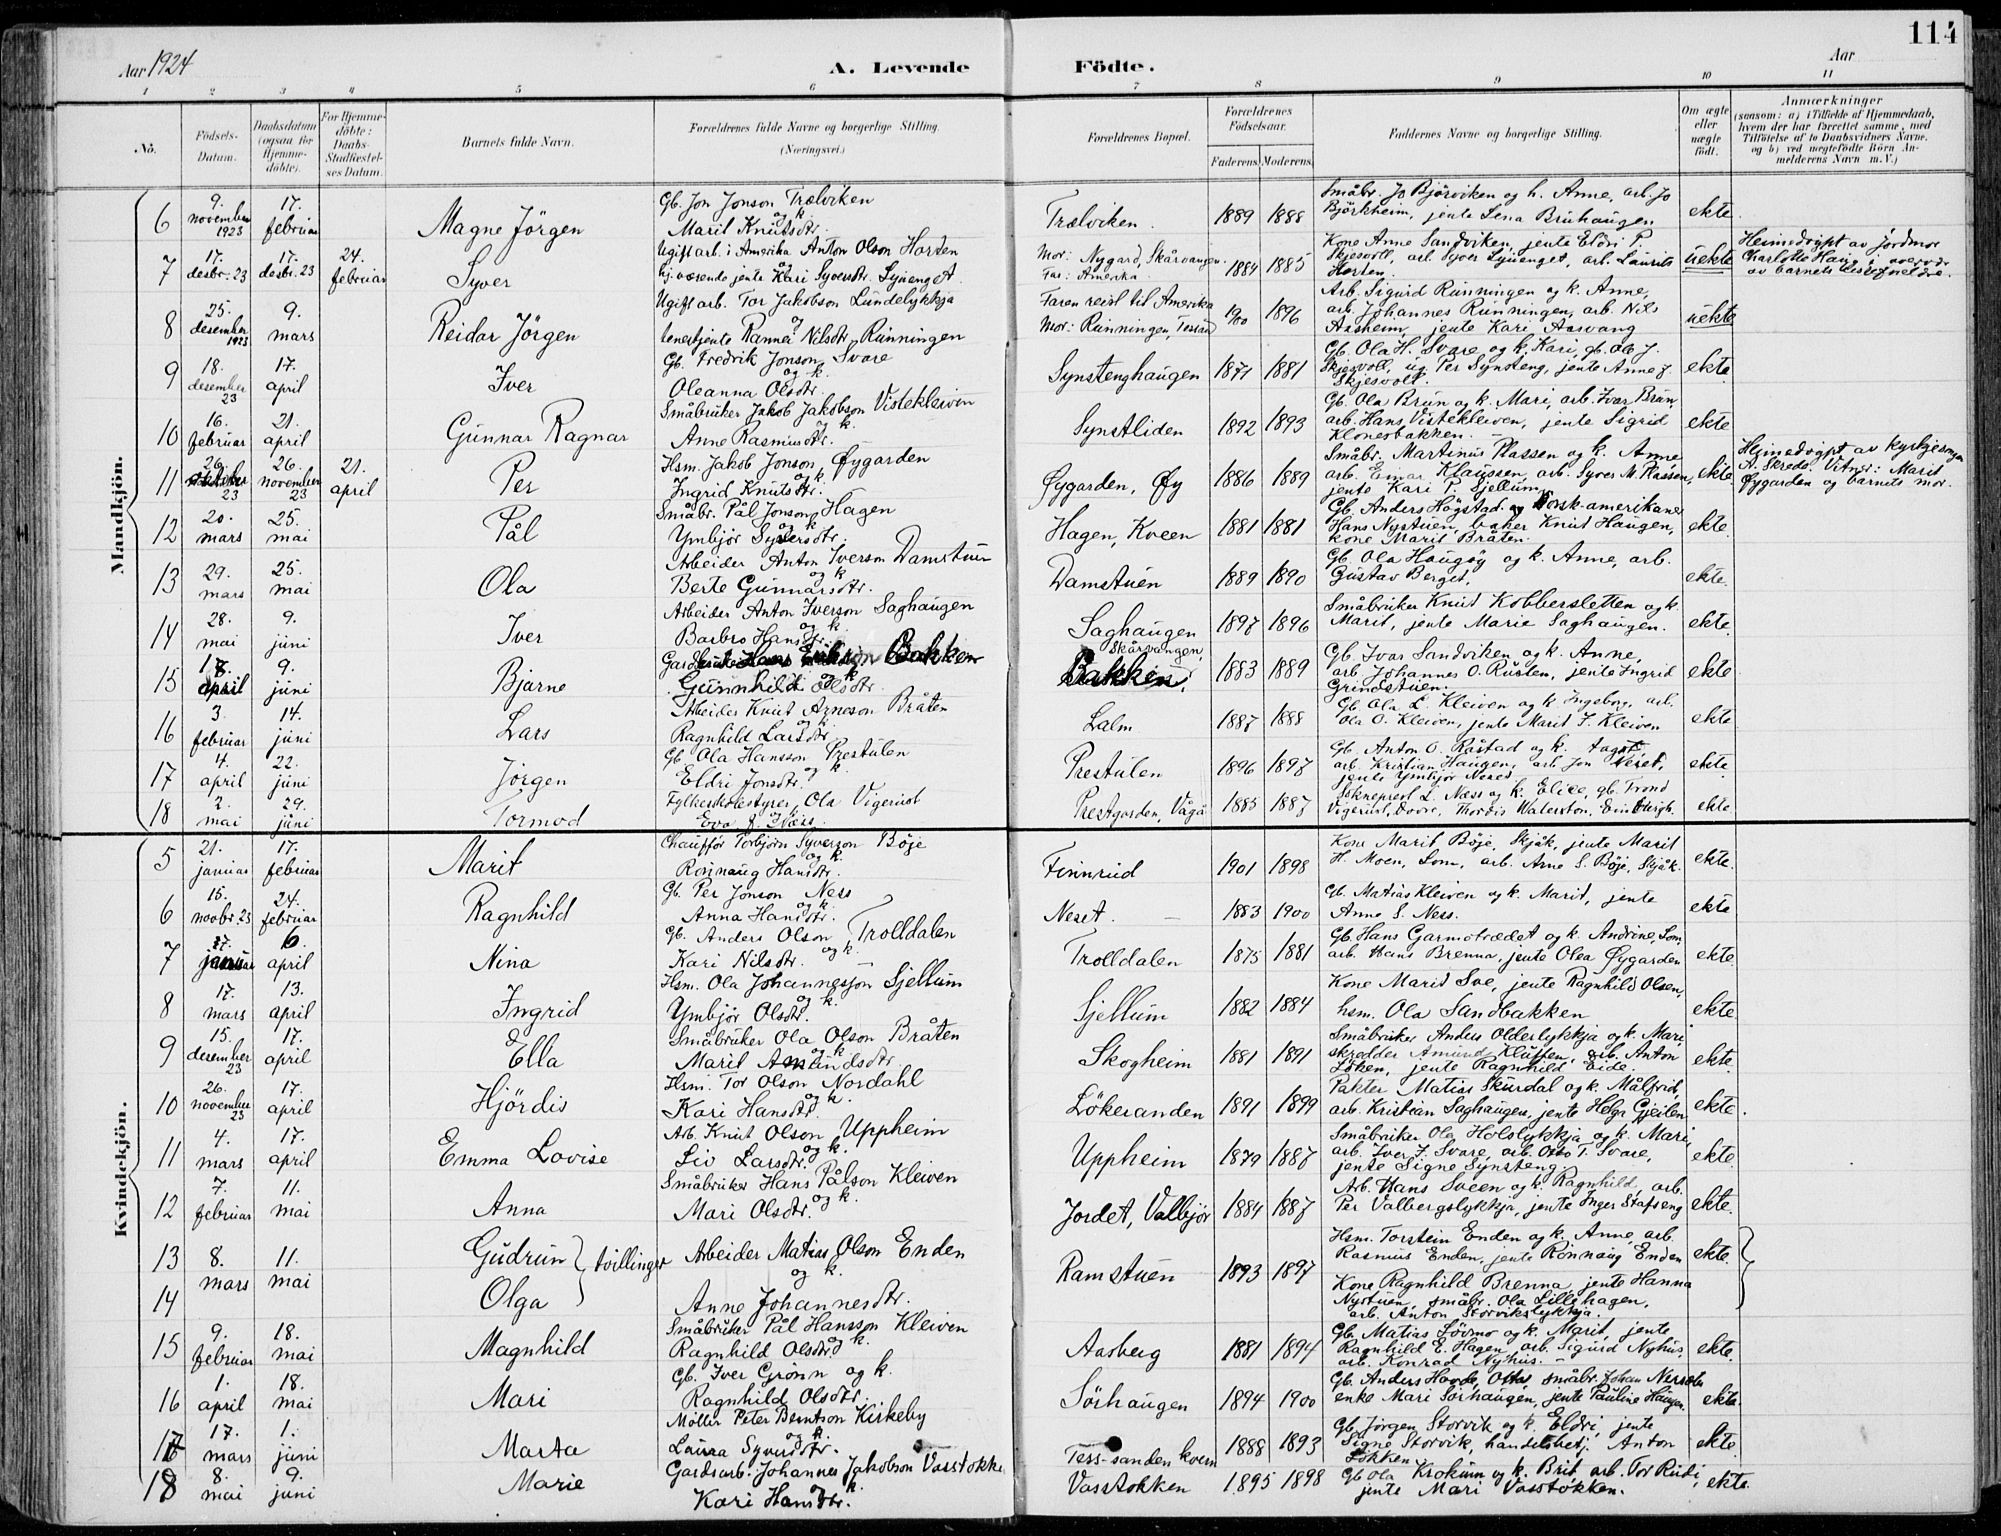 Aar 1924
A. Levende Födte.
Aar
114
1 2 3 4 5 6 7 8 9 10 11
No.
Födsels-Datum.
Daabsdatum (ogsaa for Hjemmedöbte).
For Hjemmedöbte: Daabs-Stadfæstelses Datum.
Barnets fulde Navn.
Forældrenes fulde Navne og borgerlige Stilling. (Næringsvei.)
Forældrenes Bopæl.
Forældrenes Födselsaar. Faderens. Moderens.
Faddernes Navne og borgerlige Stilling.
Om ægte eller uægte födt.
Anmærkninger (saasom: a) i Tilfælde af Hjemmedaab, hvem der har forrettet samme, med Tilföielse af to Daabsvidners Navne. og b) ved uægtefödte Börn Anmelderens Navn m. V.)
Mandkjön.
6 9. november 1923 17. februar Magne Jörgen Gb. Jon Jonson Trælviken og k. Marit Knutsdtr. Trælviken 1889 1888 Småbr. Jo Bjørviken og h. Anne, arb. Jo Björkheim, jente Lena Bruhaugen ekte.
7 17. desbr. 23 17. desbr. 23 24. februar Syver Ugift arb. i Amerika Anton Olson Horden og hj. værende jente Kari Syversdtr. Mor: Nygard, Skårvangen. Far: Amerika. 1884 1885 Kone Anne Sandviken, jente Eldri P. Skjesvoll, arb. Syver arb. Laurits uekte Heimedöypt av jordmor Charlotte Haug
8 25. desember 1923 9. mars Reidar Jörgen Ugift arb. Tor Jakobson Lundelykkja og tenestjente Rannei Nilsdtr. Runningen Faren reist til Amerika Mor: Runningen, 1900 1896 Arb. Sigurd Runningen og k. Anne, arb. Johannes Runningen, arb. Nils Aasheim, jente Kari Aasvang uekte
9 18. desember 23 17. april Iver Gb. Fredrik Jonson Svare og k. Oleanna Olsdtr. Synstenghaugen 1871 1881 Gb. Ola H. Svare og k. Kari, gb. Ole J. Skjesvoll, ug. Per Synsteng, jente Anne J. Skjesvoll. ekte
10 16. februar 21. april Gunnar Ragnar Småbruker Jakob Jakobson Vistekleiven og k. Anne Rasmusdtr. Synstliden 1892 1893 Gb. Ola Brun og k. Mari, arb. Ivar Brun, arb. Hans Vistekleiven, jente Sigrid Klonesbakken. ekte
11 26. 23 26. november 23 21. april Per Hsm. Jakob Jonson Øygarden og k. Ingrid Knutsdtr. Øygarden, Øy 1886 1889 Småbr. Martinus Plassen og k. Anne arb. Einar Klaussen, arb. Syver M. Plassen, jente Kari P. Sjellum ekte Heimedöypt av kyrkjesongar A. Skredo Vitner: Marit Øygarden og barnets mor.
12 20. mars 25. mai Pål Småbr. Pål Jonson Hagen og k. Ymbjör Syversdtr. Hagen, Kveen 1881 1881 Gb. Anders Högstad og Norsk-amerikaner Hans Nystuen, baker Knut Haugen, kone Marit Bråten. ekte
13 29. mars 25. mai Ola Arbeider Anton Iverson Damstuen og k Berte Gunnarsdtr. Damstuen 1889 1890 Gb. Ola Haugöy og k. Anne, arb. Gustav Berget. ekte.
14 28. mai 9. juni Iver Arbeider Anton Iverson Saghaugen og k. Barbro Hansdtr. Saghaugen 1897 1896 Småbruker Knut Kobbersletten og k. Marit, jente Marie Saghaugen. ekte
15 april 9. juni Bjarne Bakken og k Gunnhild Olsdtr. Skårvangen, Bakken 1883 1889 Gb. Ivar Sandviken og k. Anne, arb. Johannes O. Rusten, jente Ingrid Grindstuen. ekte
16 3. februar 14. juni Lars Arbeider Knut Arneson Bråten og k Ragnhild Larsdtr. Lalm 1887 1888 Gb. Ola L. Kleiven og k. Ingeborg, arb. Ola O. Kleiven, jente Marit I. Kleiven ekte
17 4. april 22. juni Jörgen Gb. Ola Hansson Prestulen og k Eldri Jonsdtr. Prestulen 1896 1897 Gb. Anton O. Råstad og k. arb. Kristian Haugen, arb. Jon Neset, jente Ymbjör Neset ekte
18 2. mai 29. juni Tormod Fylkesskolestyrer Ola Vigerust og Eva J. Næss. Prestgarden, Vågå 1885 1887 Sokneprest L. Næss og k. Elise, gb. Trond Vigerust, Dovre, Thordis ekte
Kvindekjön.
5 21. januar 17. februar Marit Chauffør Torbjörn Syverson Böje og k. Rönnaug Hansdtr. Finnrud 1901 1898 Kone Marit Böje, Skjåk, jente Marit H. Moen, Lom, arb. Arne S. Böje, Skjåk. ekte.
6 15. novbr. 23 24. februar Ragnhild Gb. Per Jonson Ness og k. Anna Hansdtr. Neset. 1883 1900 Gb. Matias Kleiven og k. Marit, jente Anne S. Ness. ekte
7 27. januar 6. april Nina Gb. Anders Olson Trolldalen og k. Kari Nilsdtr. Trolldalen 1875 1881 Gb. Hans Garmotrædet og k. Andrine, Lom arb. Hans Brenna, jente Olea Øygarden ekte
8 17. mars 13. april Ingrid Hsm. Ola Johannesson Sjellum og k. Ymbjör Olsdtr. Sjellum 1882 1884 Kone Marit Sve, jente Ragnhild Olsen, hsm. Ola Sandbakken ekte
9 15. desember 23 17. april Ella Småbruker Ola Olson Bråten og k Marit Amundsdtr. Skogheim 1881 1891 Småbruker Anders Olderlykkja og k. Mari, skredder Amund Kluften, arb. Anton Löken, jente Ragnhild Eide. ekte.
10 26. november 23 17. april Hjördis Hsm. Tor Olson Nordahl og k. Kari Hansdtr. Lökeranden 1891 1899 Pakter Matias Skurdal og k. Målfrid, arb. Kristian Saghaugen, jente Helga Gjeilen ekte.
11 4. mars 17. april Emma Lovise Arb. Knut Olson Uppheim og k. Liv Larsdtr. Uppheim 1879 1887 Småbruker Ola Holslykkja og k. Mari, arb. Iver J. Svare, arb. Otto T. Svare, jente Signe Synsteng. ekte
12 7. februar 11. mai Anna Småbruker Hans Pålson Kleiven og k. Mari Olsdtr. Jordet, Valbjör 1884 1887 Arb. Hans Sveen og k. Ragnhild, arb. Per Valbergslykkja, jente Inger Stafseng ekte.
13 8. mars 11. mai Gudrun } tvillinger Arbeider Matias Olson Enden og k. Ramstuen 1893 1897 Hsm. Torstein Enden og k. Anne, arb. Rasmus Enden, jente Rönnaug Enden ekte. }
14 Olga Anne Johannesdtr. Kone Ragnhild Brenna, jente Hanna Nystuen, småbr. Ola Lillehagen, arb. Anton Storvikslykkja.
15 9. februar 18. mai Magnhild Småbruker Pål Hansson Kleiven og k. Ragnhild Olsdtr. Aasberg 1881 1894 Gb. Matias Lövmo og k. Marit, jente Ragnhild E. Hagen, arb. Sigurd Nyhus, arb. Konrad Nyhus. ekte.
16 1. april 18. mai Mari Gb. Iver Grönn og k. Ragnhild Olsdtr. Sörhaugen 1894 1900 Gb. Anders Horde, Otta småbr. Johan enke Mari Sörhaugen, jente Pauline Haugen. ekte.
17 17. mars 1. juni Marta Möller Peter Berntson Kirkeby og k. Laura Syversdtr. Tess-sanden kvern 1888 1893 Gb. Jörgen Storvik og k. Eldri, jente Signe Storvik, handelsbetj. Anton Lökken. ekte
18 8. mai 9. juni Marie Gardsarb. Johannes Jakobson Vasstokk og k. Kari Hansdtr. Vasstokken 1895 1898 Gb Ola Krokum og k. Brit, arb. Tor Rudi, jente Mari Vasstokken. ekte